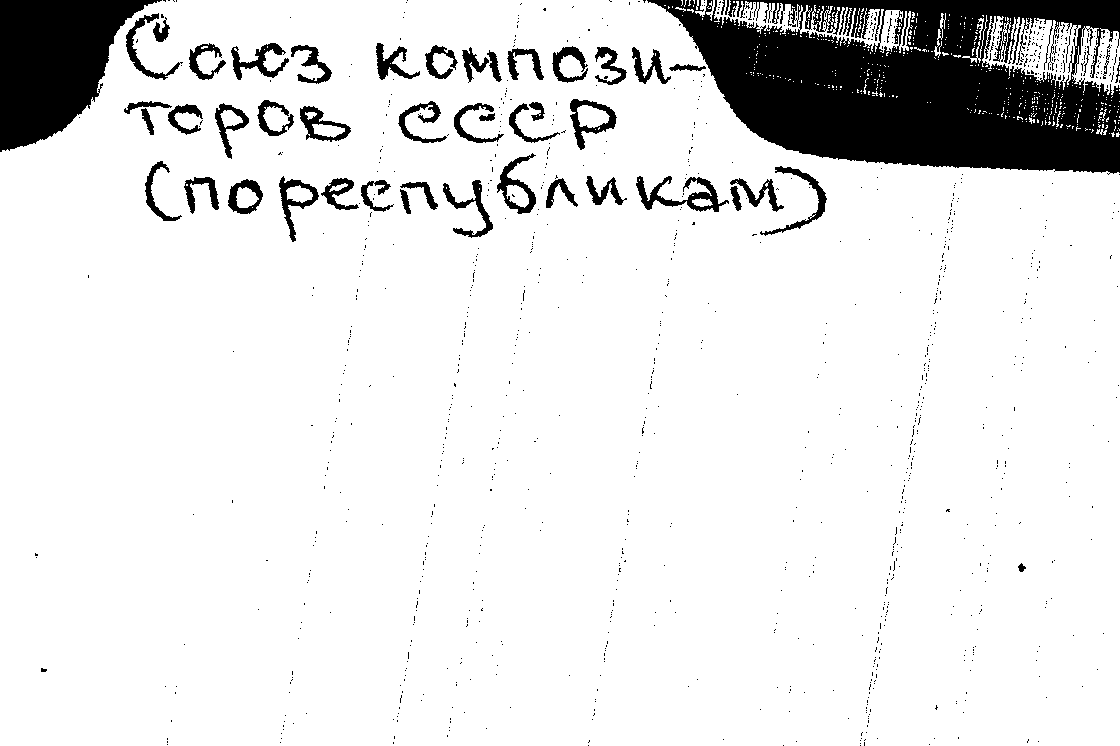 Союз компози-
торов СССР
(по республикам)